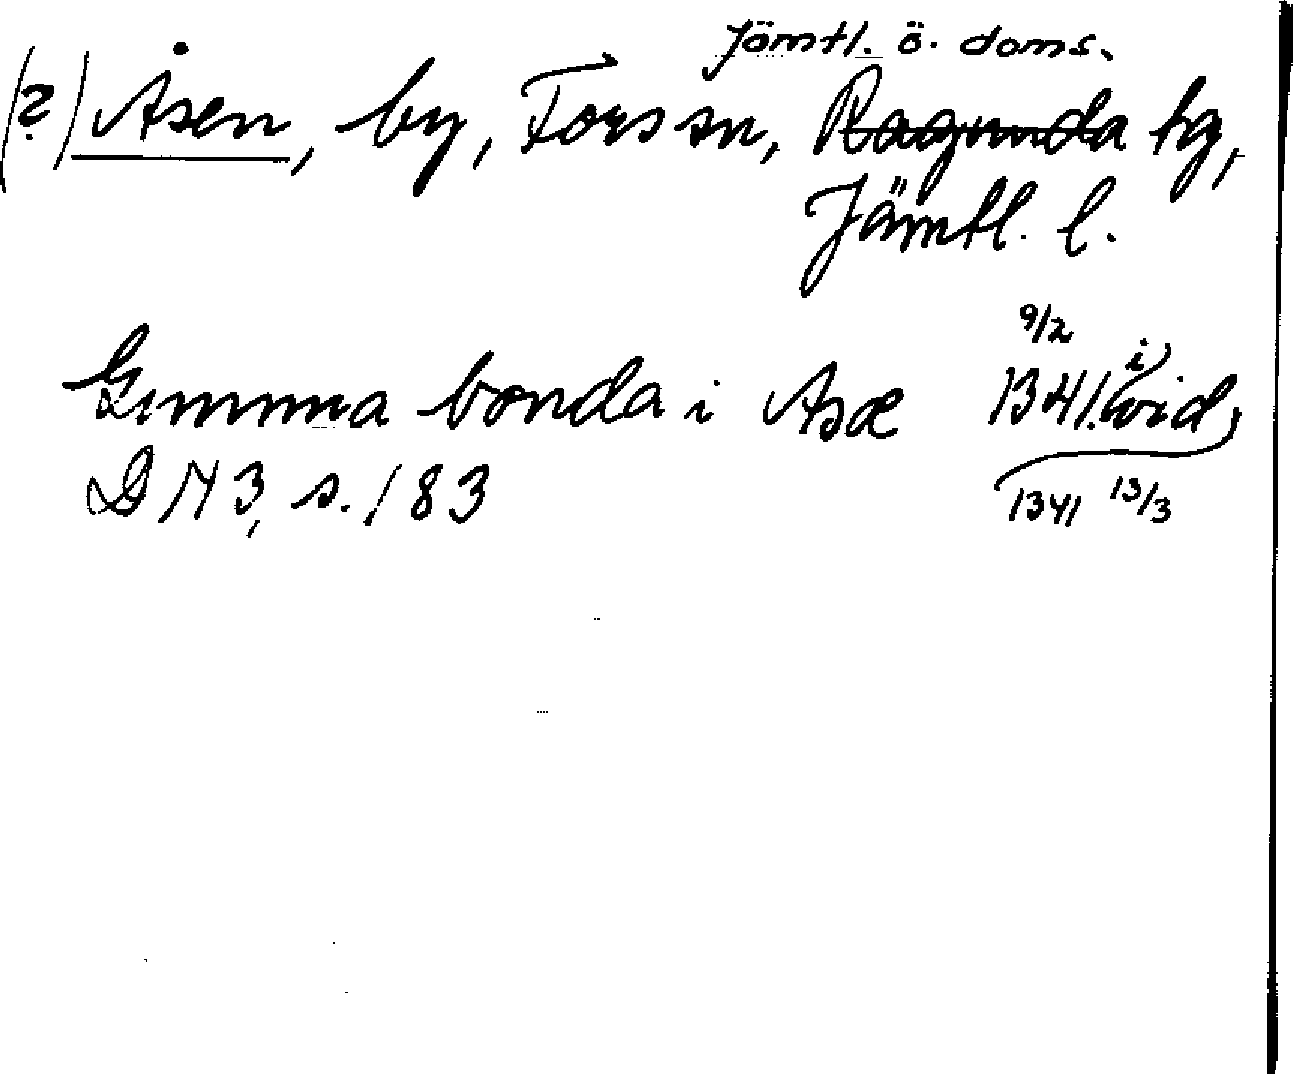 Jämtl. ö. doms.
(?) Åsen, by, Fors sn, Ragunda tg,
Jämtl. l.
9/2
Gimma bonda i Asæ 1341. i) vid,
DN 3, s. 183 1341 13/3